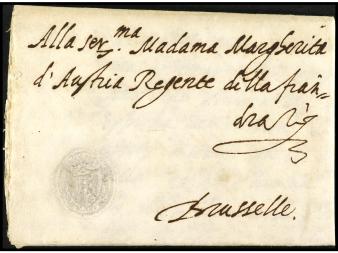 Alla ser.ma Madama Margherita
d'Austria Regente della fian=
dra
Brusselle.